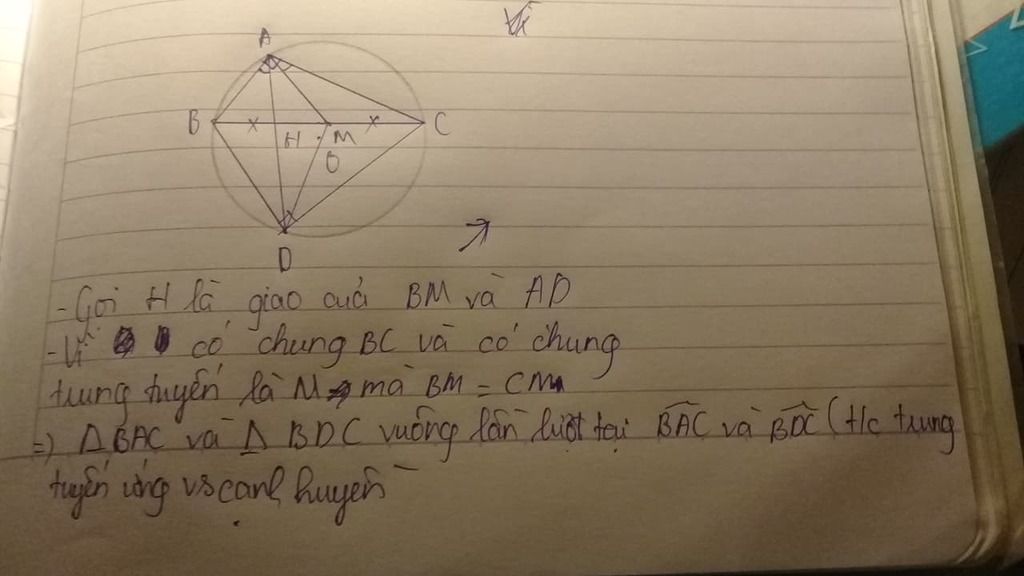 Vì
A
B
H
M
C
O
D
- Gọi H là giao cuả BM và AD
- Vì có chung BC và có chung
trung tuyến là M mà BM = CM
=> Δ BAC và Δ BDC vuông lần lượt tại BAC và BDC (t/c trung
tuyến ứng vs cạnh huyền